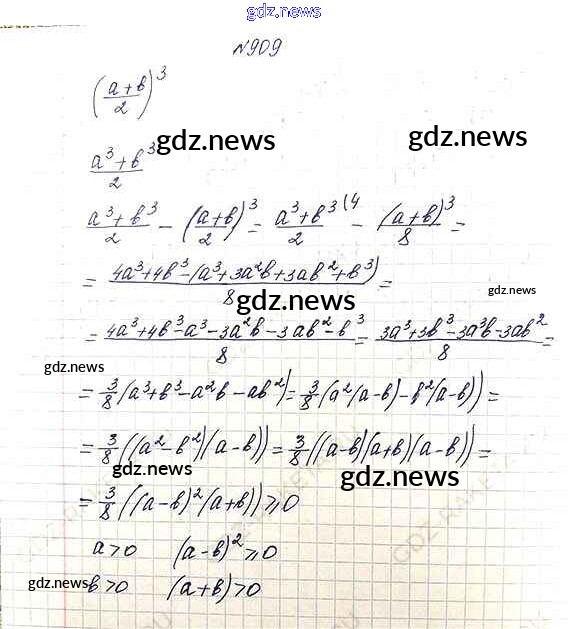 gdz.news
№909
(a+b/2)³
gdz.news
gdz.news
a³+b³/2
a³+b³/2 - (a+b/2)³ = a³+b³/2 (4 - (a+b)³/8 =
= 4a³+4b³-(a³+3a²b+3ab²+b³)/8 =
gdz.news
gdz.news
= 4a³+4b³-a³-3a²b-3ab²-b³/8 = 3a³+3b³-3a³b-3ab²/8 =
gdz.news
= 3/8 (a³+b³-a²b-ab²) = 3/8 (a²(a-b)-b²(a-b)) =
= 3/8 ((a²-b²)(a-b)) = 3/8 ((a-b)(a+b)(a-b)) =
gdz.news
gdz.news
= 3/8 ((a-b)²(a+b)) ≥ 0
a>0 (a-b)² ≥ 0
gdz.news b>0 (a+b)>0